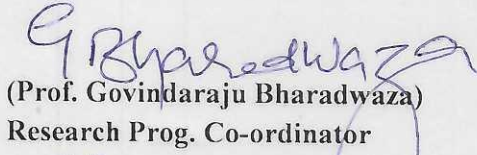 G Bharadwaza
(Prof. Govindaraju Bharadwaza)
Research Prog. Co-ordinator